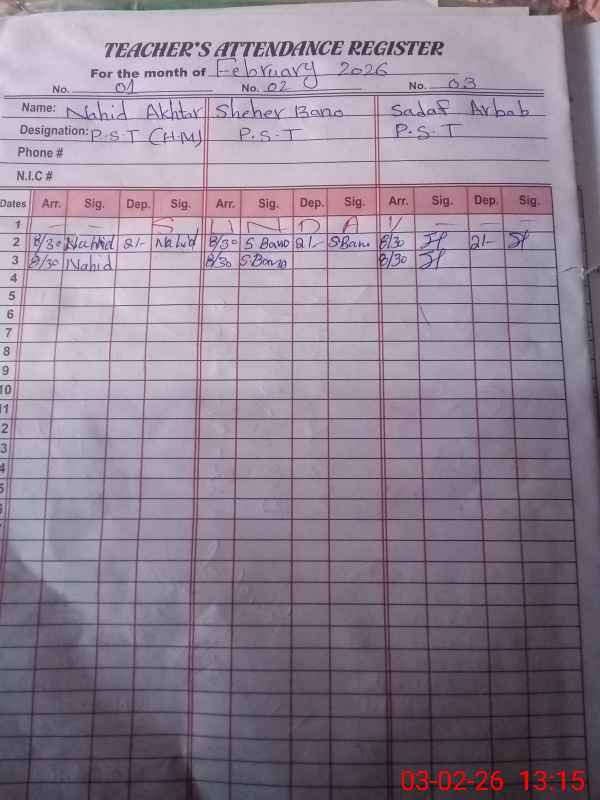 TEACHER'S ATTENDANCE REGISTER
For the month of February 2026
No. 01 No. 02 No. 03
Name: Nahid Akhtar Sheher Bano Sadaf Arbab
Designation: P.S.T (H.M) P.S.T P.S.T
Phone #
N.I.C #
Dates Arr. Sig. Dep. Sig. Arr. Sig. Dep. Sig. Arr. Sig. Dep. Sig.
1 — — S U N D A Y — — —
2 8/30 Nahid 2/- Nahid 8/30 S Bano 2/- S Bano 8/30 2/-
3 8/30 Nahid 8/30 S.Bano 8/30
4
5
6
7
8
9
10
11
2
3
4
5
6
03-02-26 13:15